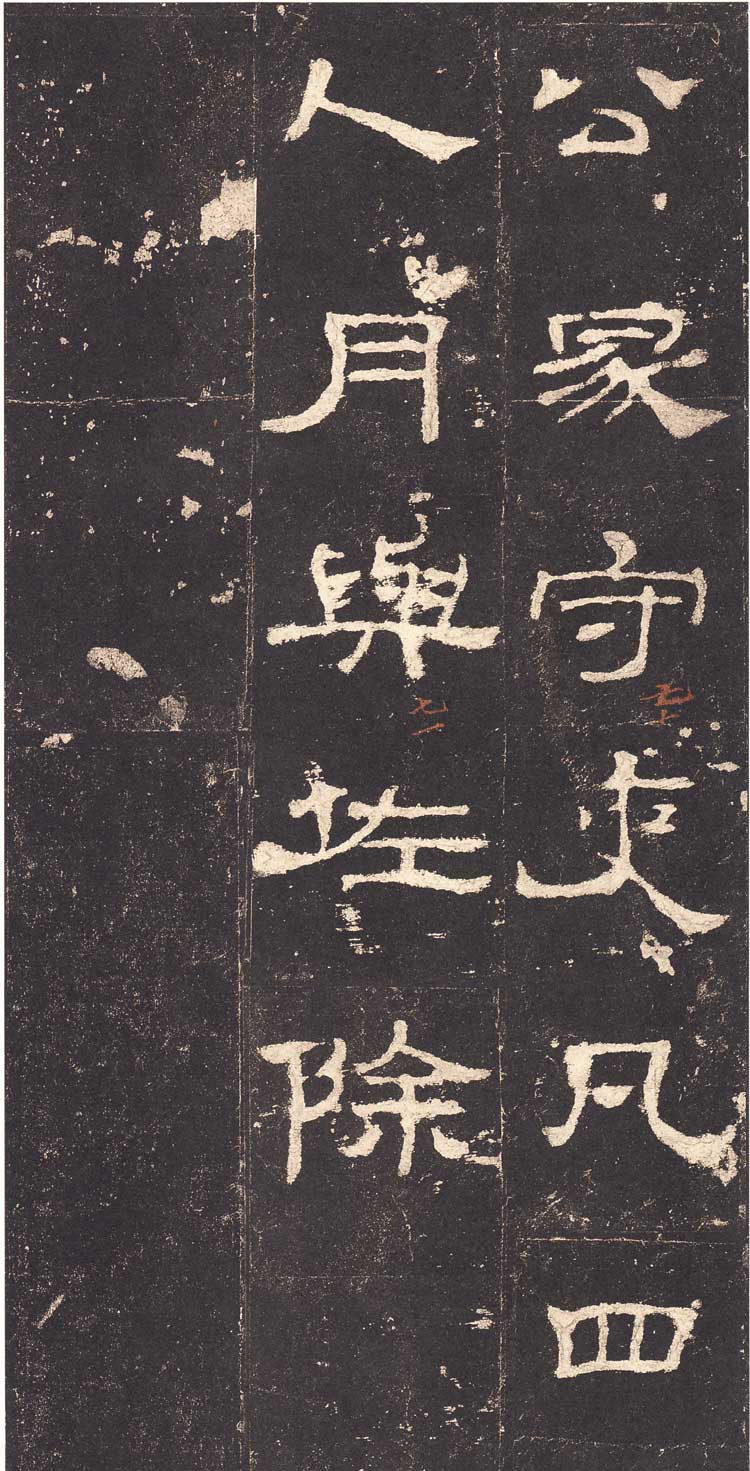 公冢守吏凡四
人月與佐除